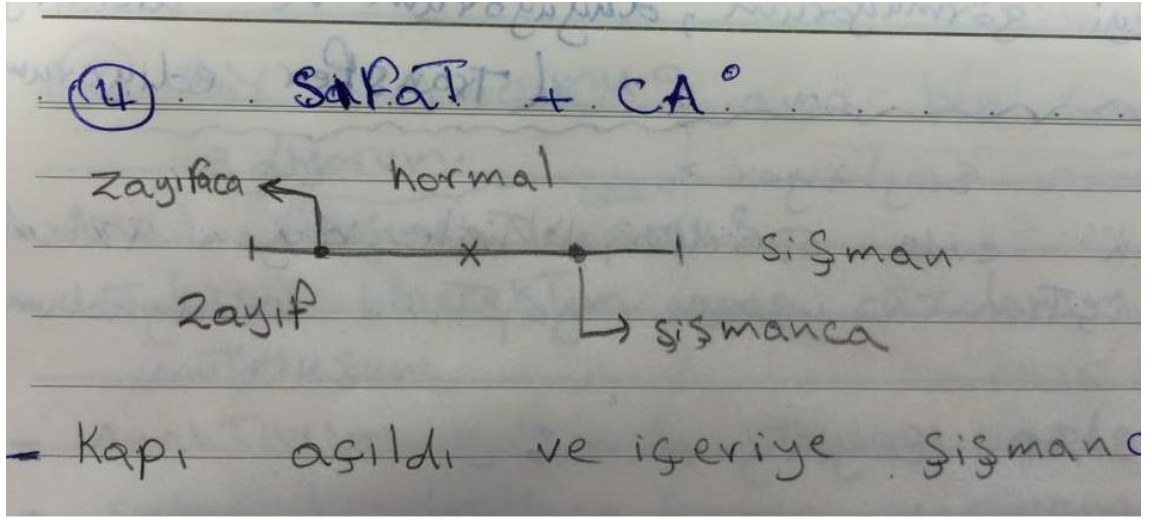 4 SıfaT + CA
zayıfca normal
şişman
zayıf
şişmanca
- Kapı açıldı ve içeriye şişmanc